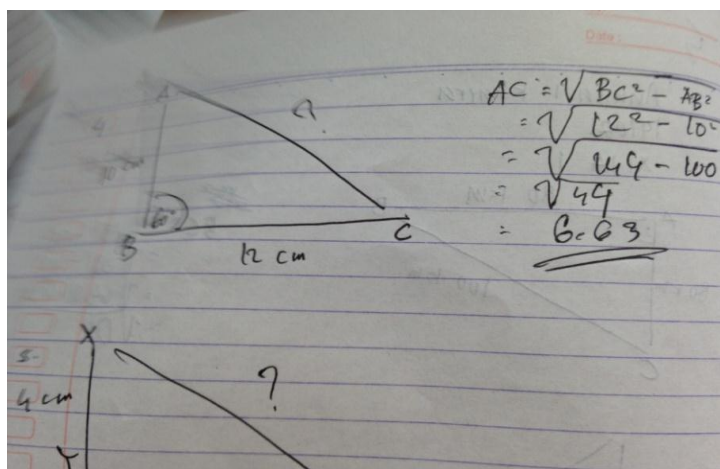 Date:
A
?
4
10 cm
60°
B
12 cm
C
AC = √BC² - AB²
= √12² - 10²
= √144 - 100
= √44
= 6.63
X
5-
4 cm
?
Y